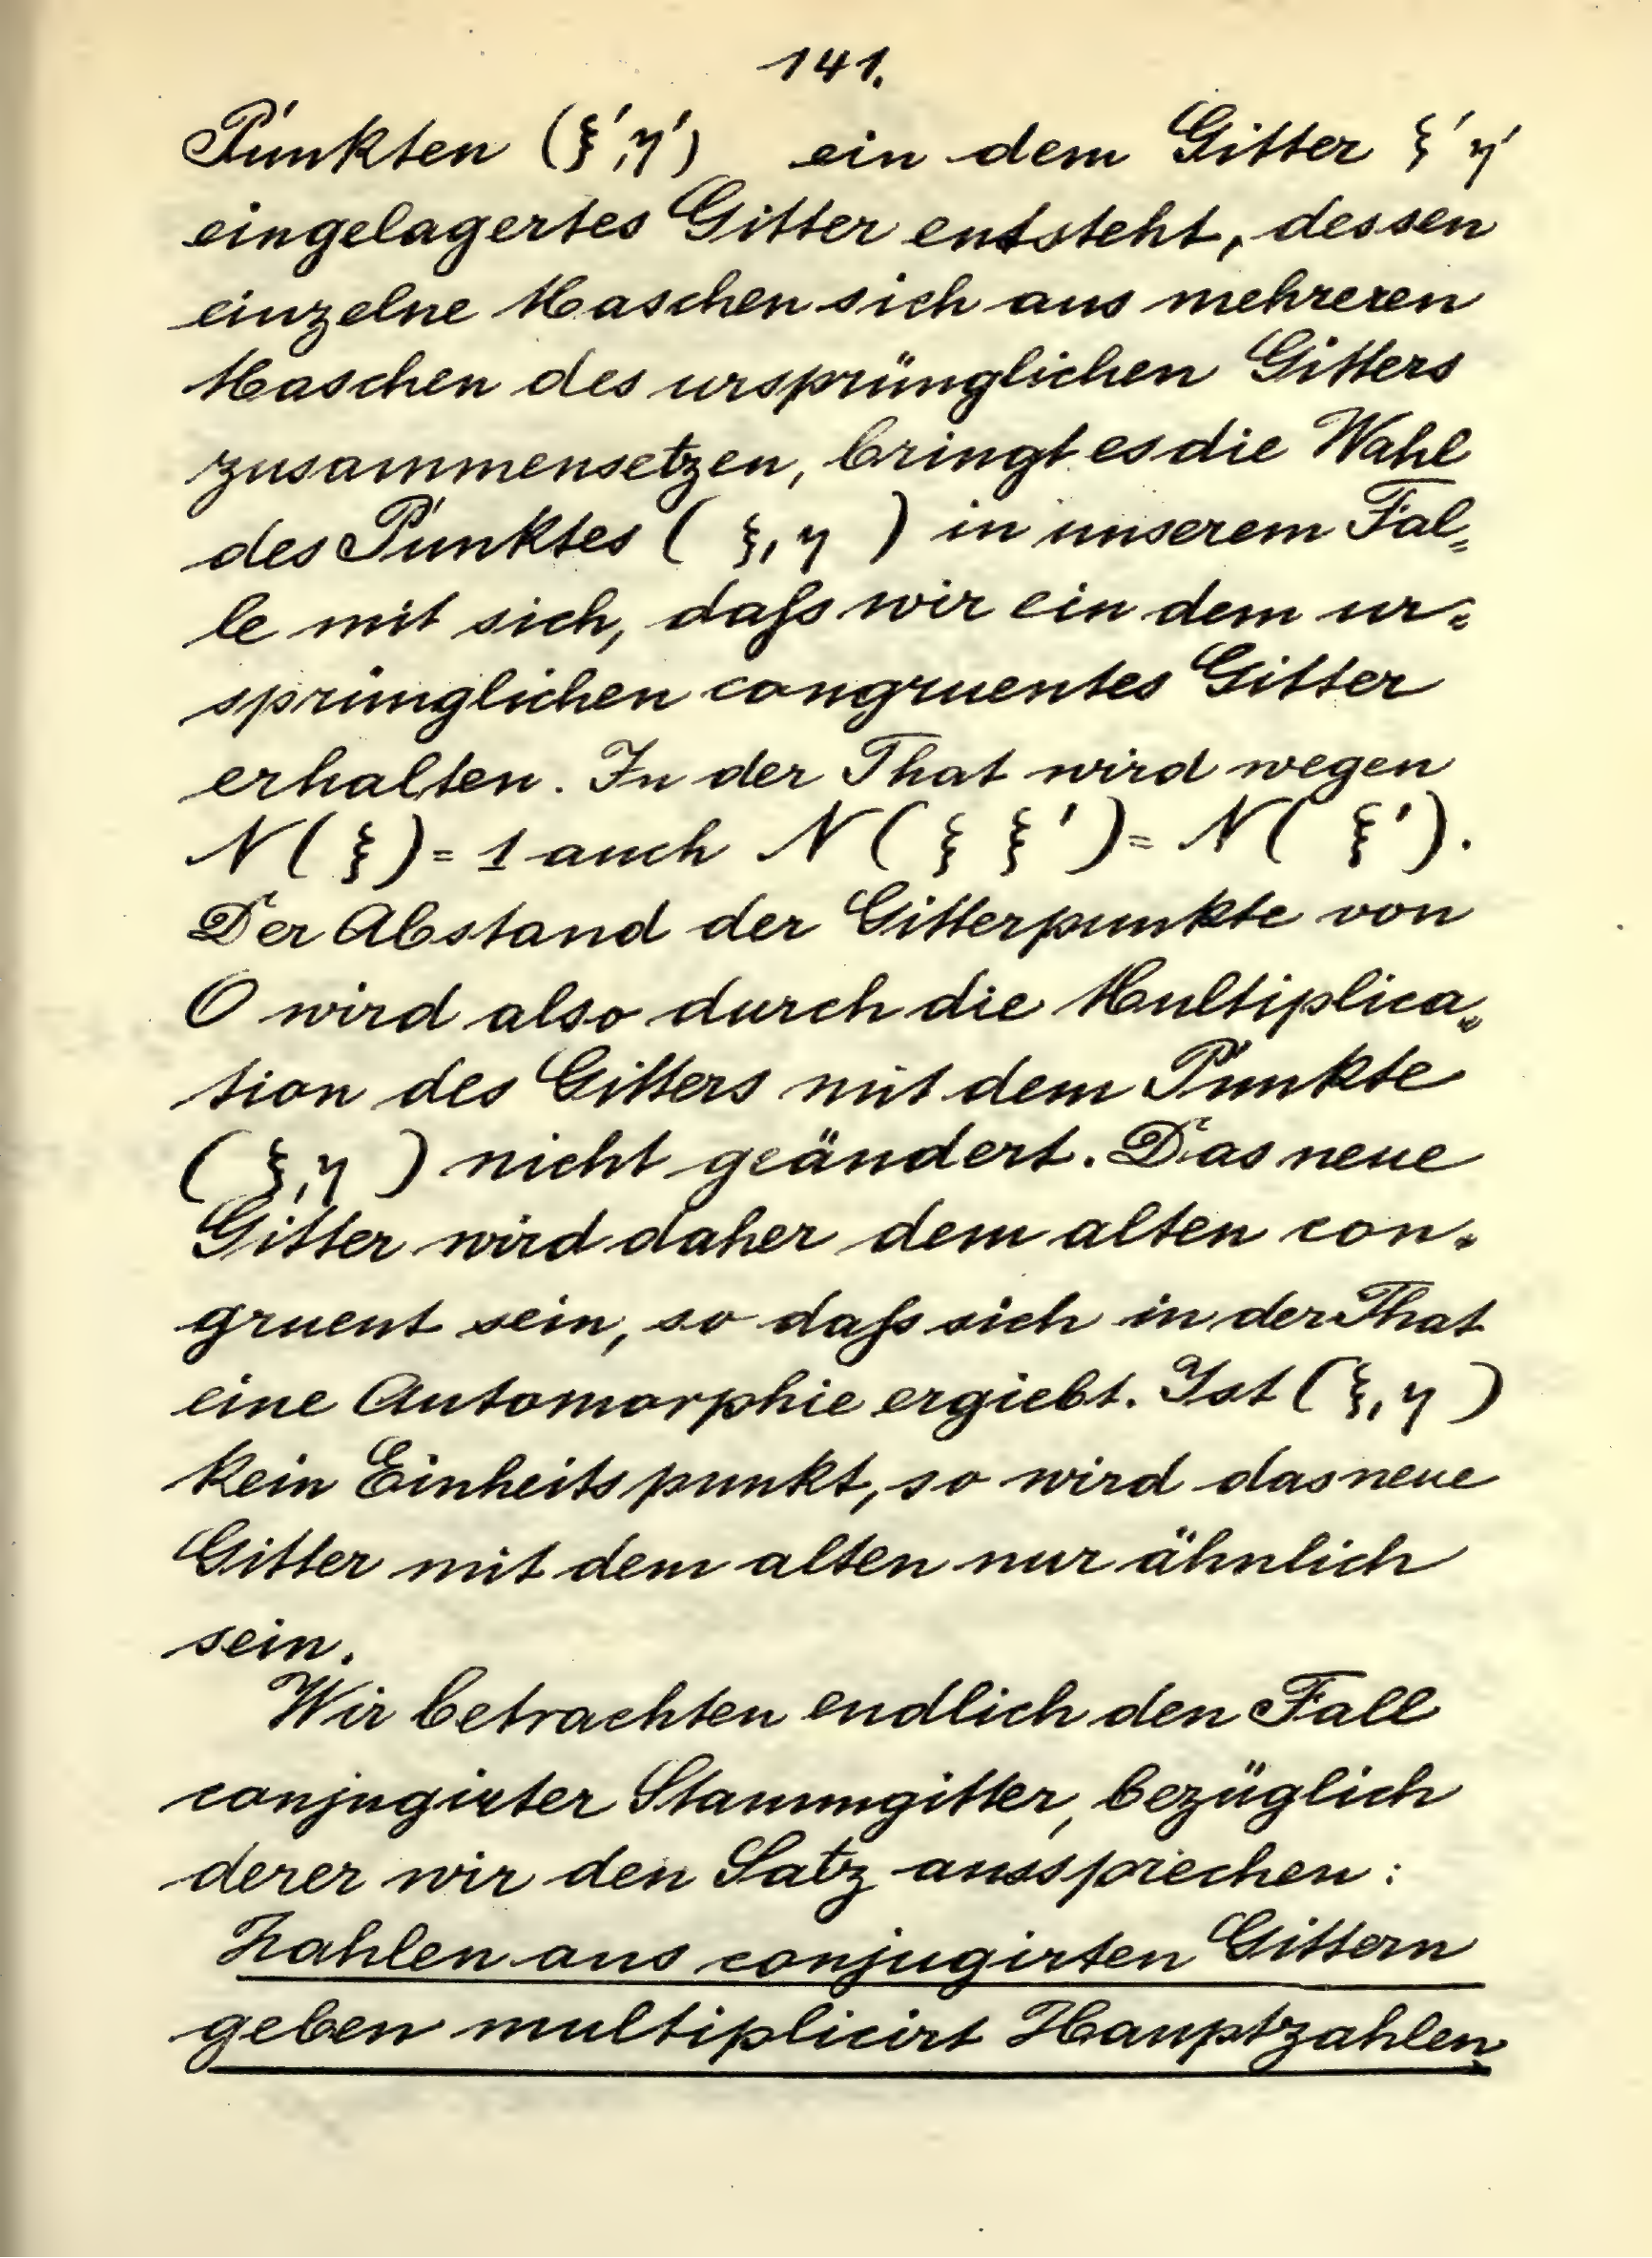 141.
Punkten (ξ',η') ein dem Gitter ξ' η'
eingelagertes Gitter entsteht, dessen
einzelne Maschen sich aus mehreren
Maschen des ursprünglichen Gitters
zusammensetzen, bringt es die Wahl
des Punktes ( ξ, η ) in unserem Fal=
le mit sich, daſs wir ein dem ur=
sprünglichen congruentes Gitter
erhalten. In der That wird wegen
N( ξ )= 1 auch N( ξ ξ' )= N( ξ' ).
Der Abstand der Gitterpunkte von
O wird also durch die Multiplica=
tion des Gitters mit dem Punkte
( ξ, η ) nicht geändert. Das neue
Gitter wird daher dem alten con=
gruent sein, so daſs sich in der That
eine Automorphie ergiebt. Ist ( ξ, η )
kein Einheitspunkt, so wird das neue
Gitter mit dem alten nur ähnlich
sein.
Wir betrachten endlich den Fall
conjugirter Stammgitter, bezüglich
derer wir den Satz aussprechen:
Zahlen aus conjugirten Gittern
geben multiplicirt Hauptzahlen.